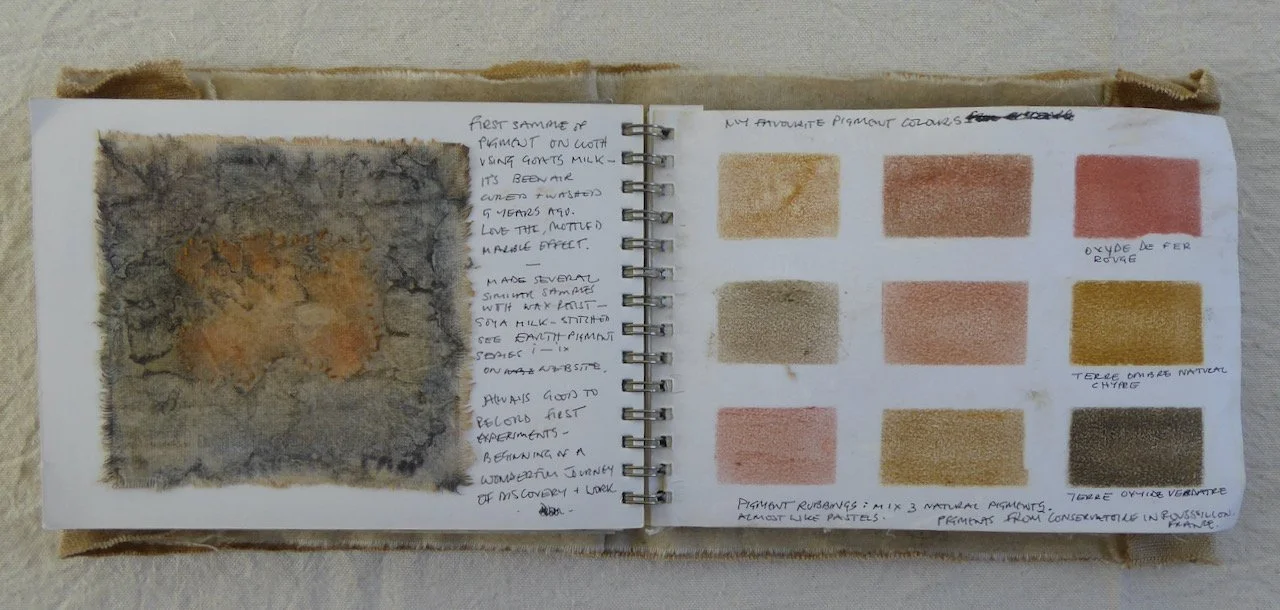 FIRST SAMPLE OF
PIGMENT ON CLOTH
USING GOATS MILK –
ITS BEEN AIR
CURED + WASHED
9 YEARS AGO.
LOVE THE, MOTTLED
MARBLE EFFECT.
—
MADE SEVERAL
SIMILAR SAMPLES
WITH WAX RESIST –
SOYA MILK – STITCHED
SEE EARTH PIGMENT
SERIES i – ix
ON WEBSITE.
ALWAYS GOOD TO
RECORD FIRST
EXPERIMENTS –
BEGINNING OF A
WONDERFUL JOURNEY
OF DISCOVERY + WORK
MY FAVOURITE PIGMENT COLOURS
OXYDE DE FER
ROUGE
TERRE OMBRE NATURAL
CHYPRE
TERRE OXYIDE VERDATRE
PIGMENT RUBBINGS : MIX 3 NATURAL PIGMENTS.
ALMOST LIKE PASTELS.
PIGMENTS FROM CONSERVATOIRE IN ROUSSILLON.
FRANCE.